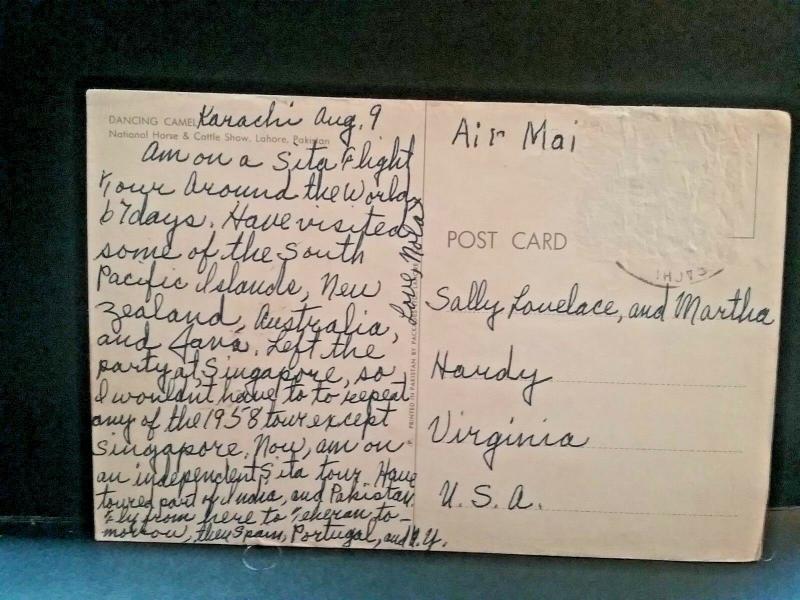 DANCING CAMEL
National Horse & Cattle Show, Lahore, Pakistan
Karachi Aug, 9
Am on a Sita Flight
Tour around the World,
67days. Have visited
some of the South
Pacific Islands, New
Zealand, Australia,
and Java. Left the
party at Singapore, so
I wouldn't have to to repeat
any of the 1958 tour except
Singapore. Now, am on
an independent Sita tour. Have
toured part of India, and Pakistan.
Fly from here to Teheran to-
morrow, then Spain, Portugal, and N.Y.
Love, Nola
PRINTED IN PAKISTAN BY
Air Mai
POST CARD
Sally Lovelace, and Martha
Hardy
Virginia
U. S. A.